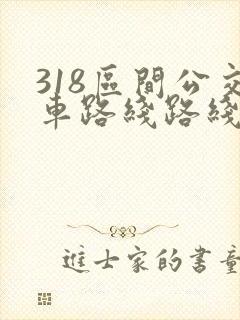 318區間公交
車路綫路綫
進士家的書童